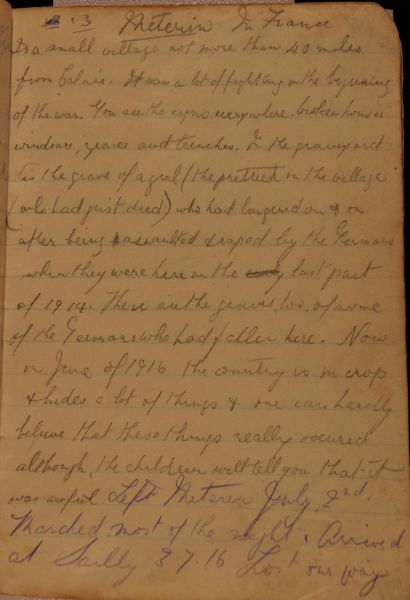 3 Meterin In France
Is a small village not more than 40 miles
from Calais. It saw a lot of fighting in the beginning
of the war. You see the signs everywhere. broken houses
windows, graves and trenches. In the graveyard
is the grave of a girl (the prettiest in the village
(who had just died) who had lingered on & on
after being assaulted & raped by the Germans
when they were here in the last part
of 1914. There are the graves, too, of some
of the Germans who had fallen here. Now
in June of 1916 the country is in crop
& hides a lot of things & one can hardly
believe that these things really occured
although, the children will tell you that it
was awful. Left Meteren July 2nd.
Marched most of the night & Arrived
at Sailly 3.7.16 Lost our way